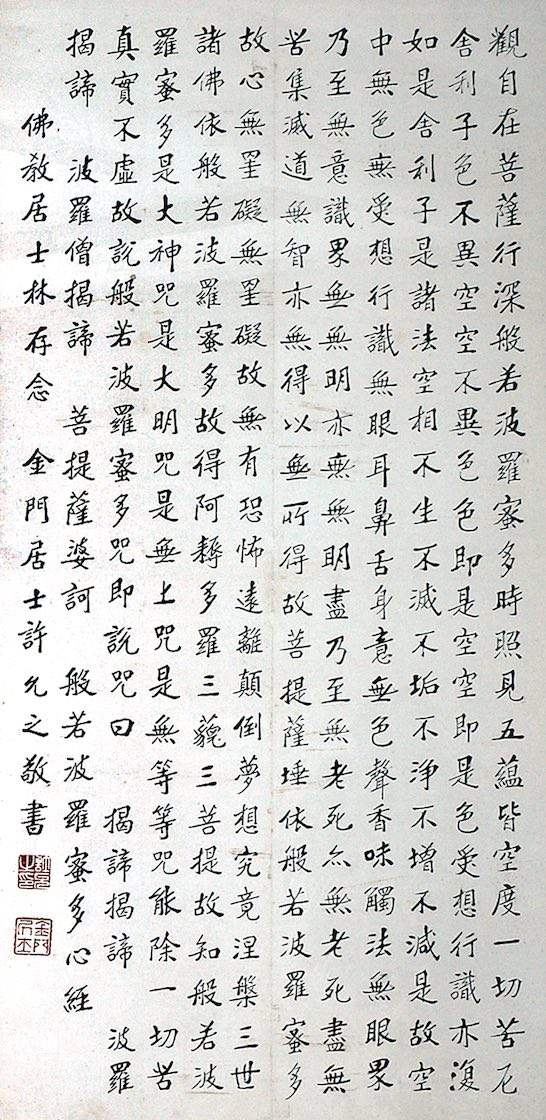 觀自在菩薩行深般若波羅蜜多時照見五蘊皆空度一切苦厄
舍利子色不異空空不異色色即是空空即是色受想行識亦復
如是舍利子是諸法空相不生不滅不垢不淨不增不減是故空
中無色無受想行識無眼耳鼻舌身意無色聲香味觸法無眼界
乃至無意識界無無明亦無無明盡乃至無老死亦無老死盡無
苦集滅道無智亦無得以無所得故菩提薩埵依般若波羅蜜多
故心無罣礙無罣礙故無有恐怖遠離顛倒夢想究竟涅槃三世
諸佛依般若波羅蜜多故得阿耨多羅三藐三菩提故知般若波
羅蜜多是大神咒是大明咒是無上咒是無等等咒能除一切苦
真實不虛故說般若波羅蜜多咒即說咒曰 揭諦揭諦 波羅
揭諦 波羅僧揭諦 菩提薩婆訶 般若波羅蜜多心經
佛教居士林存念 金門居士許允之敬書